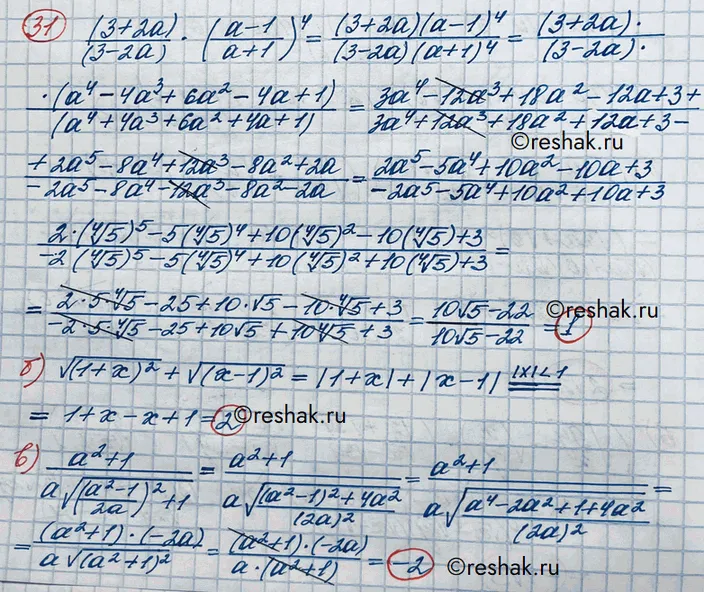 31 (3+2a)/(3-2a) · ((a-1)/(a+1))^4 = (3+2a)(a-1)^4/(3-2a)(a+1)^4 = (3+2a)·/(3-2a)·
·(a^4-4a^3+6a^2-4a+1)/(a^4+4a^3+6a^2+4a+1) = 3a^4-12a^3+18a^2-12a+3+/3a^4+12a^3+18a^2+12a+3-
©reshak.ru
+2a^5-8a^4+12a^3-8a^2+2a/-2a^5-8a^4-12a^3-8a^2-2a = 2a^5-5a^4+10a^2-10a+3/-2a^5-5a^4+10a^2+10a+3
2·(∜5)^5-5(∜5)^4+10(∜5)^2-10(∜5)+3/-2(∜5)^5-5(∜5)^4+10(∜5)^2+10(∜5)+3 =
= 2·5·∜5-25+10·√5-10·∜5+3/-2·5·∜5-25+10√5+10∜5+3 = 10√5-22/10√5-22 = 1
©reshak.ru
б) √(1+x)^2 + √(x-1)^2 = |1+x|+|x-1| |x|<1 =
= 1+x-x+1=2
©reshak.ru
в) a^2+1/a√((a^2-1)/2a)^2+1 = a^2+1/a√((a^2-1)^2+4a^2)/(2a)^2 = a^2+1/a√(a^4-2a^2+1+4a^2)/(2a)^2 =
= (a^2+1)·(-2a)/a√(a^2+1)^2 = (a^2+1)·(-2a)/a·(a^2+1) = -2
©reshak.ru